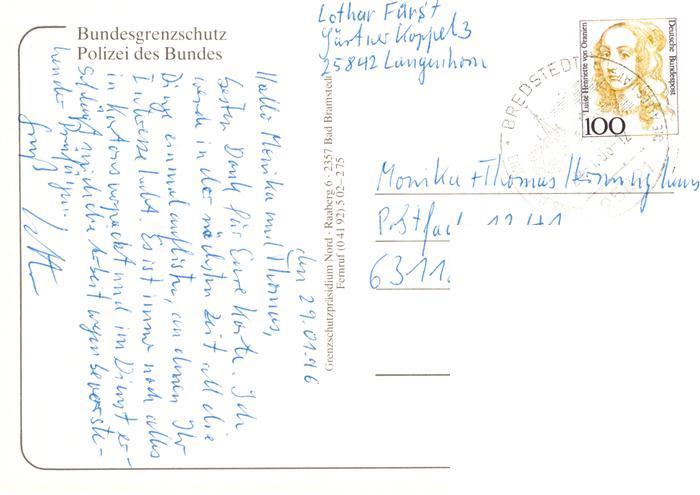 Bundesgrenzschutz
Polizei des Bundes
Lothar Fürst
Gärtner Koppel 3
25842 Langenhorn
Deutsche Bundespost
Luise Henriette von Oranien
100
BREDSTEDT
Monika + Thomas
Postfach
6311
Grenzschutzpräsidium Nord · Raaberg 6 · 2357 Bad Bramstedt
Fernruf (0 41 92) 5 02-275
den 29.01.96
Hallo Monika und Thomas,
besten Dank für Eure Karte. Ich
werde in der nächsten Zeit all die
Dinge einmal auflisten, an denen Ihr
Interesse habt. Es ist immer noch alles
in Kartons verpackt und im Dienst er-
schlägt mich die Arbeit wegen bevorste-
hender
Gruß